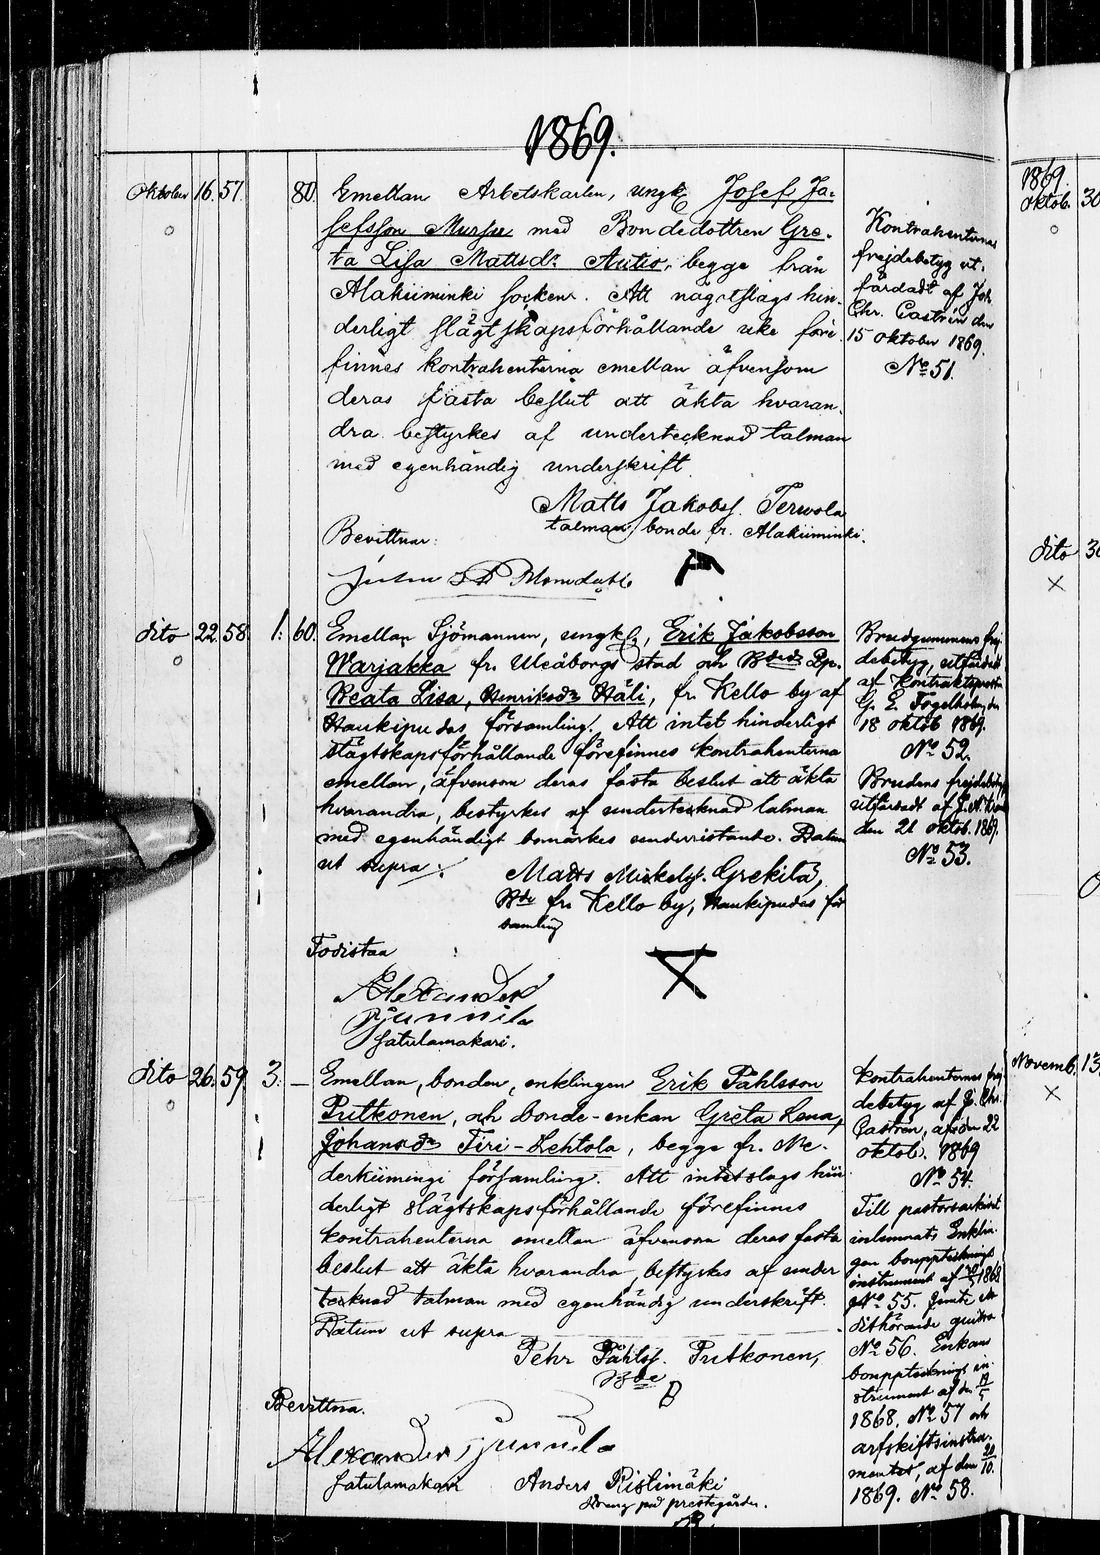 1869.
Oktober 16. 57. 80. Emellan Arbetskarlen, ungk. Josef Jo-
sefsson Mursu med Bondedottren Gre-
ta Lisa Mattsdr Autio, begge från
Alakiiminki socken. Att någotslags hin-
derligt slägtskapsförhållande icke före
finnes kontrahenterna emellan äfvensom
deras fasta beslut att äkta hvaran-
dra bestyrkes af undertecknad talman
med egenhändig underskrift
Matts Jakobss. Terwola
talman, bonde fr. Alakiiminki.
Bevittnar:
Kontrahenternas
frejdebetyg ut-
färdadt af Joh.
Chr. Castrén den
15 oktober 1869.
No 51.
dito 22. 58. 1. 60. Emellan Sjömannen, ungk., Erik Jakobsson
Warjakka fr. Uleåborgs stad och Bdedr Pp.
Beata Lisa, Henriksdr Häli, fr. Kello by af
Haukipudas församling. Att intet hinderligt
slägtskapsförhållande förefinnes kontrahenterna
emellan, äfvensom deras fasta beslut att äkta
hvarandra, bestyrkes af undertecknad talman
med egenhändigt bomärkes underristande. Datum
ut supra
Matts Mickelss. Grekilä,
Bde fr. Kello by, Haukipudas för
samling
Todistaa :
Alexander
Junnila
Satulamakari.
Brudgummens frej
debetyg, utfärdadt
af kontraktsprosten
G. E. Fogelholm den
18 oktob. 1869.
No 52.
Brudens frejdebetyg
utfärdadt af
den 21 oktob. 1869.
No 53.
dito 26. 59. 3. — Emellan, bonden, enklingen Erik Påhlsson
Putkonen, och bonde-enkan Greta Lena,
Johansdr Tiri-Lehtola, begge fr. Ne-
derkiimingi församling. Att intetslags hin
derligt slägtskapsförhållande förefinnes
kontrahenterna emellan äfvensom deras fasta
beslut att äkta hvarandra, bestyrkes af under
tecknad talman med egenhändig underskrift.
Datum ut supra
Pehr Påhlss. Putkonen,
Bde
Bevittna.
Alexander Junnila
Satulamakari
Anders Ristimäki
Dräng på prestgården.
Kontrahenternes frej
debetyg af J. Chr.
Castrén, af den 22
oktob. 1869
No 54.
Till pastorsarkivet
inlemnats Enklin-
gen bouppteknings
instrument af 1868
No 55. jemte
dithörande quitto
No 56. Enkans
bouppteknings in-
strument af den 19/5
1868, No 57 och
arfskiftsinstru-
mentet, af den 20/10.
1869. No 58.
1869.
oktob. 30
dito 30
Novemb. 13